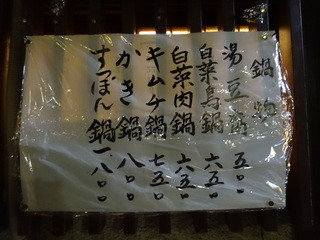 鍋物
湯豆腐 五〇〇
白菜鳥鍋 六五〇
白菜肉鍋 六五〇
キムチ鍋 七五〇
かき鍋 八〇〇
すっぽん鍋 一、八〇〇